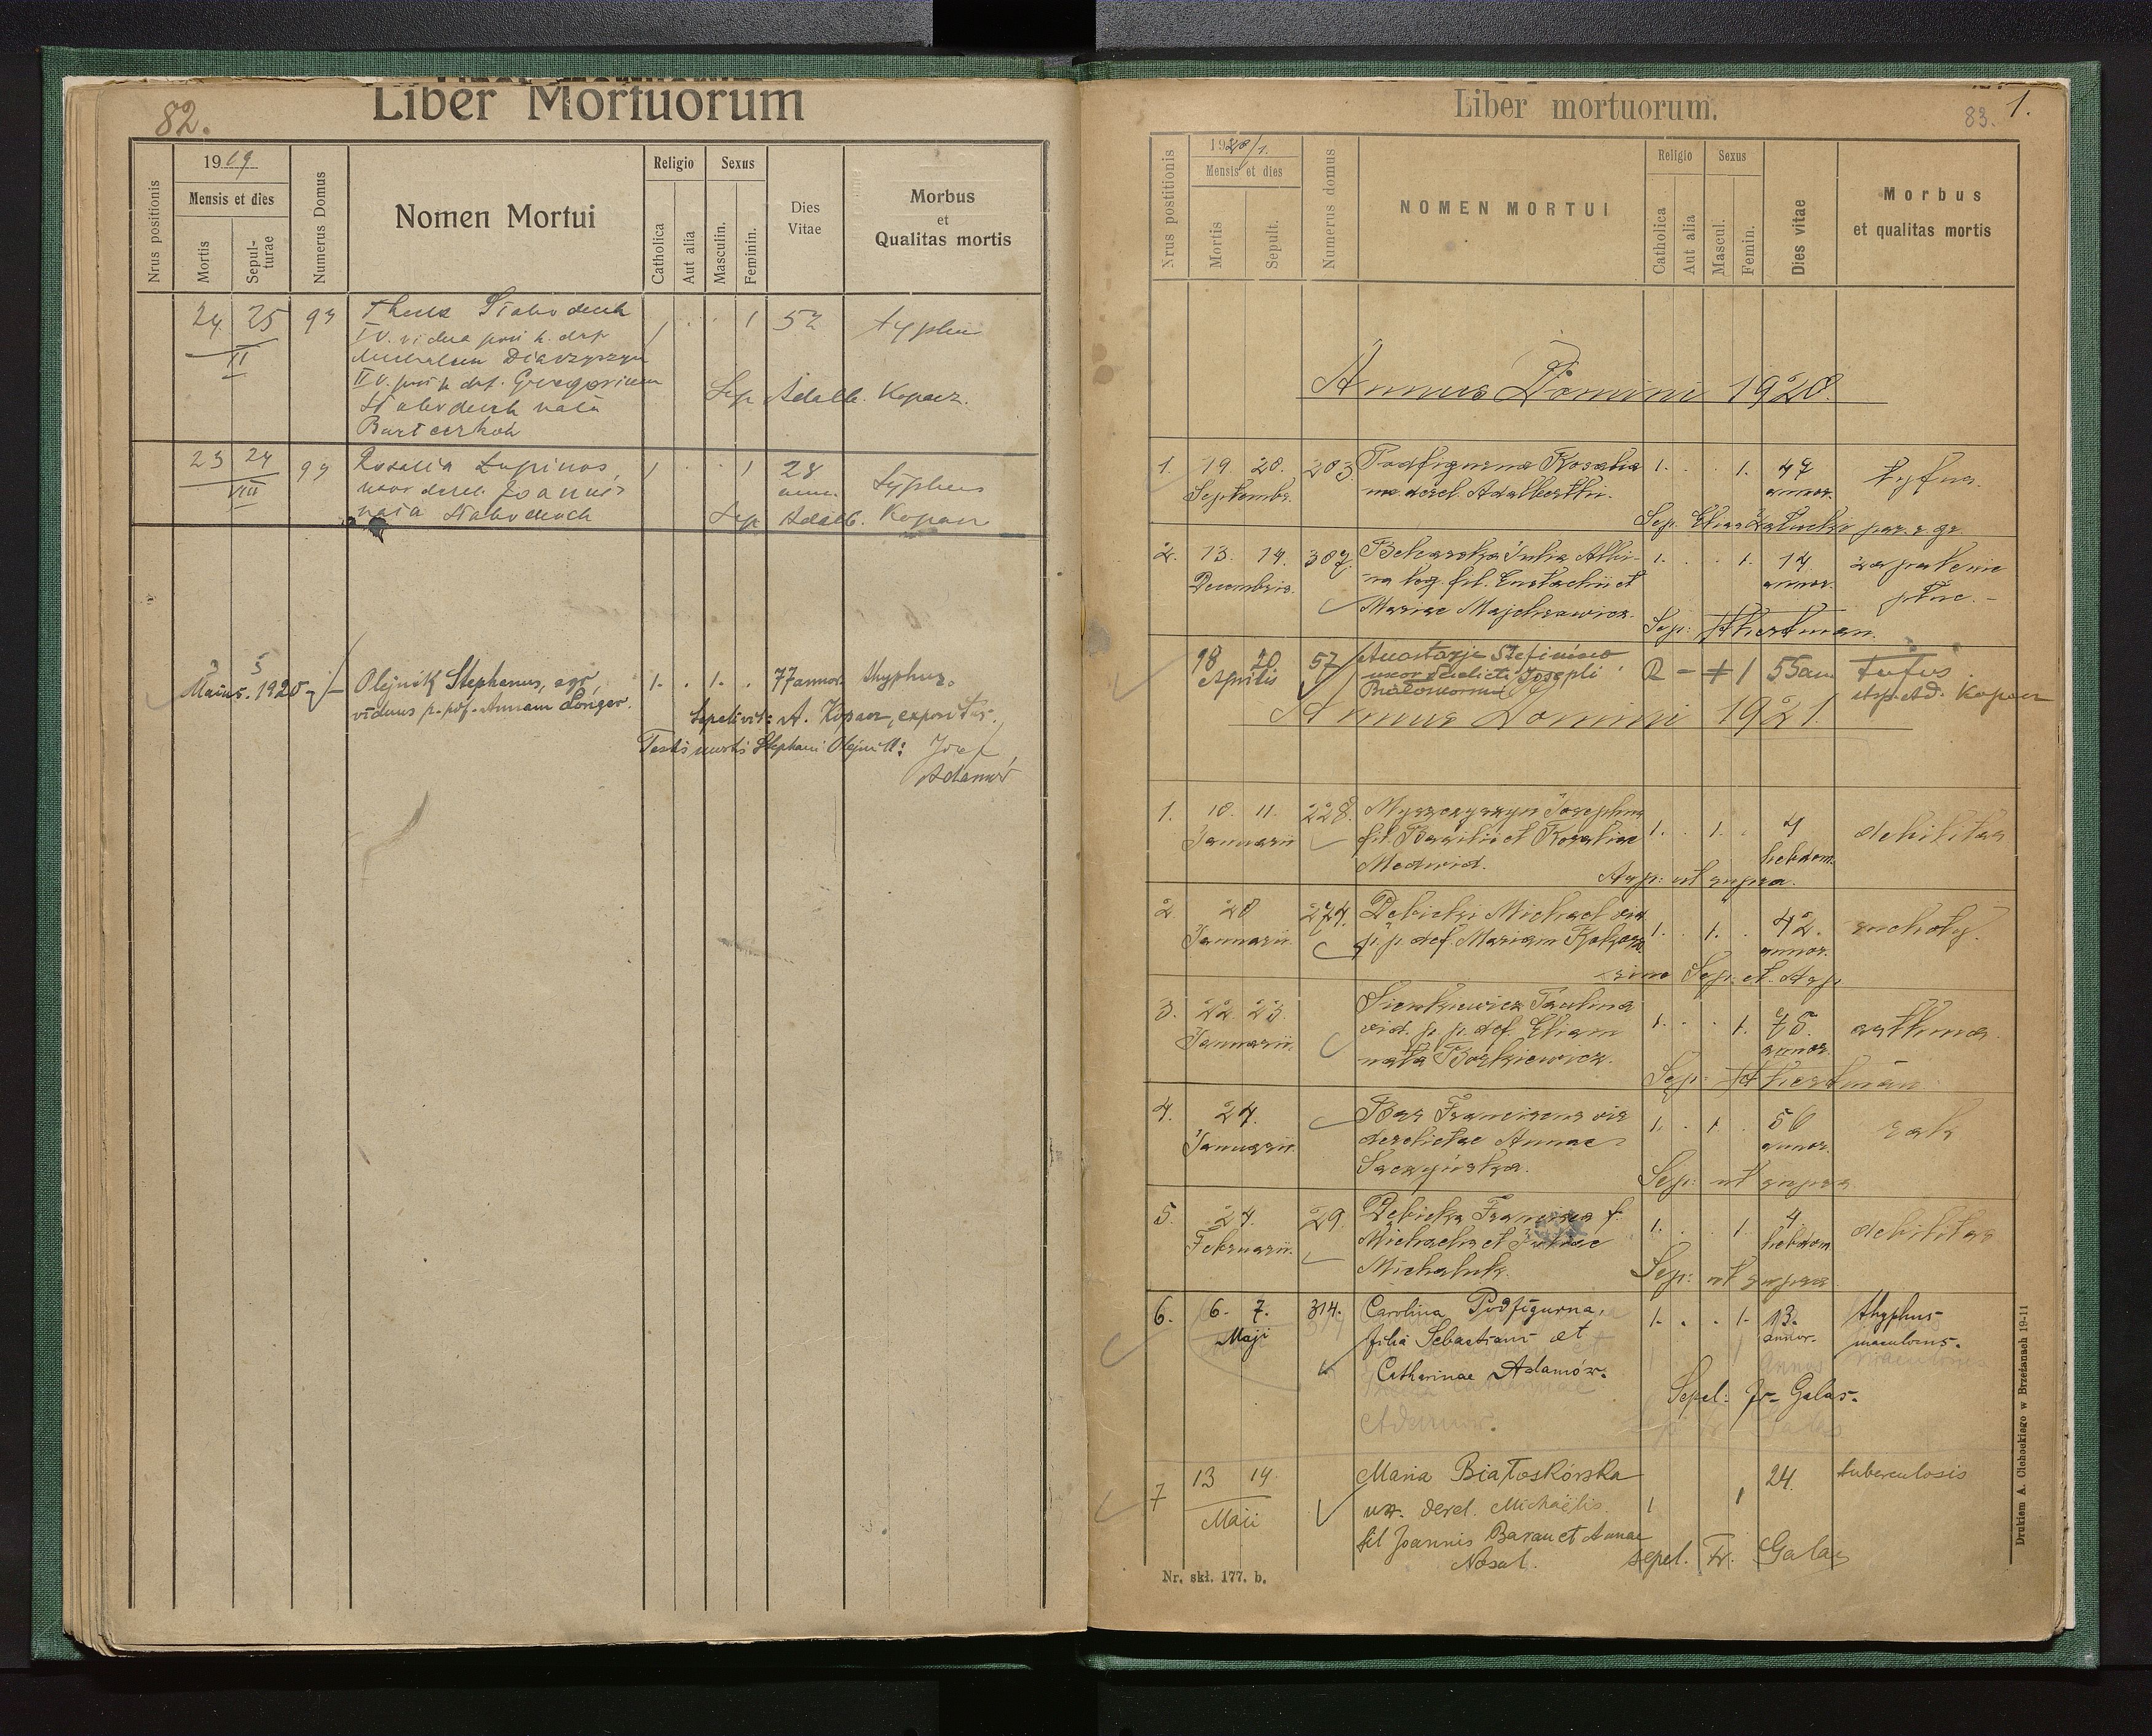 Liber Mortuorum
82.
Nrus positionis
1919
Mensis et dies
Mortis
Sepul-
turae
Numerus Domus
Nomen Mortui
Religio
Catholica
Aut alia
Sexus
Masculin.
Feminin.
Dies
Vitae
Morbus
et
Qualitas mortis
24 25 II
Michalem
II v. post h. def. Gregorium
nata
1 1 52
Sep. Adalb. Kopacz.
23 24 VIII
Rosalia Łupinos,
uxor derel. Joannis
nata
1 1 28
ann.
typhus
Sep. Adalb. Kopacz
5
Maius. 1920
Olejnik Stephanus, agr.
viduus p. p. def. Annam
1. . 1. . 77 annor. thyphus.
Sepelivit: A. Kopacz, expositus.
Testis mortis Stephani Olejnik: Józef
Adamów
Liber mortuorum.
83. 1.
Nrus postitionis
1920/1.
Mensis et dies
Mortis
Sepult.
Numerus domus
NOMEN MORTUI
Religio
Catholica
Aut alia
Sexus
Mascul.
Femin.
Dies vitae
Morbus
et qualitas mortis
Annus Domini 1920.
1. 19. 20. Septembr. 203
Podfigurna Rosalia
ux. derel. Adalberthi.
1. . . 1. 47
annor.
tyfus.
Sep. Elias Załucki par. r. gr.
2. 13. 14. Decembris. 307.
Julia Albi-
na leg. fil. Eustachii et
Mariae Majchrowicz.
1. . . 1. 14
annor.
zapalenie
płuc.
Sep: Hertman.
18 20 Aprilis 57
Anastazja
uxor relicti Josephi
55 an
tyfus
Asp. Ad. Kopacz
Annus Domini 1921.
1. 10. 11. Januarii 228.
Myszczyszyn Josephus
fil. Basilii et Rosaliae
Medwid.
1. . 1. . 4
hebdom.
debilitas
Asp: ut supra.
2. 20 Januarii. 274.
Dębicki Michael vid.
p. p. def. Mariam
1. . 1. . 42.
annor.
suchoty.
Sep. et Asp.
3. 22. 23. Januarii.
Sienkiewicz Paulina
vid. p. p. def. Eliam
nata Borkiewicz.
1. . . 1. 75.
annor.
asthma.
Sep: Hertman
4. 24. Januarii.
Bas Franciscus vir
derelictae Annae
1. . 1. . 56
annor.
rak
Sep: ut supra
5. 24. Februarii. 29.
Dębicka Francisca f.
Michaelis et Juliae
Michaluk.
1. . . 1. 4
hebdom
debilitas
Sep: ut supra.
6. 6. 7. Maji 314.
Carolina Podfigurna,
filia Sebastiani et
Catharinae Adamów.
1. . . 1. 13.
annor.
thyphus
maculosus.
Sepel: Fr. Galas.
7 13 14 Maii
Maria Białoskórska
ux. derel. Michaëlis
fil Joannis Baran et Annae
Nosal.
1 1 24. tuberculosis
sepel. Fr. Galas
Nr. skł. 177. b.
Drukiem A. Cichockiego w Brzeżanach 19-11